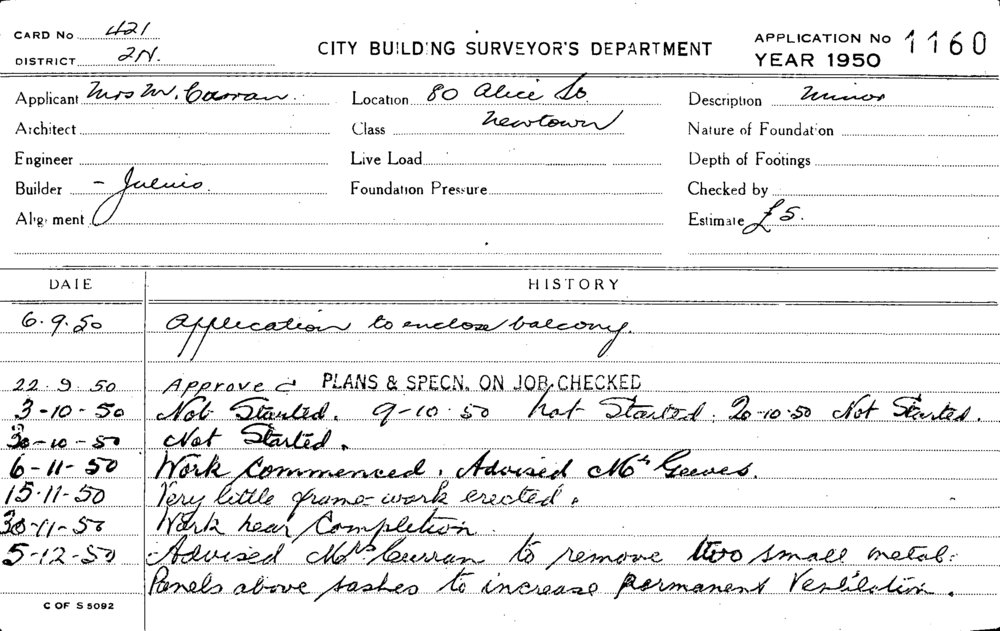 CARD No 421
DISTRICT 2N.
CITY BUILDING SURVEYOR'S DEPARTMENT
APPLICATION No 1160
YEAR 1950
Applicant Mrs M. Curran.
Location 80 Alice St.
Description Minor
Architect
Class Newtown
Nature of Foundation
Engineer
Live Load
Depth of Footings
Builder - Julius.
Foundation Pressure
Checked by
Alignment
Estimate £5.
DATE HISTORY
6.9.50 Application to enclose balcony.
22.9.50 Approved PLANS & SPECN. ON JOB, CHECKED
3-10-50 Not Started. 9-10-50 Not Started. 20-10-50 Not Started.
30-10-50 Not Started.
6-11-50 Work Commenced. Advised Mrs Geeves.
15-11-50 Very little frame-work erected.
30-11-50 Work near Completion.
5-12-50 Advised Mrs Curran to remove two small metal
Panels above sashes to increase permanent Ventilation.
C OF S 5092